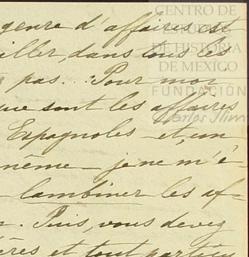 genre d'affaires est
iller, dans tous les
pas. Pour moi
que sont les affaires
Espagnoles et, un
même je ne m'é
combiner les af-
Puis, vous devez
ères et tout
CENTRO DE
DE HISTORIA
DE MEXICO
FUNDACIÓN
Carlos Slim